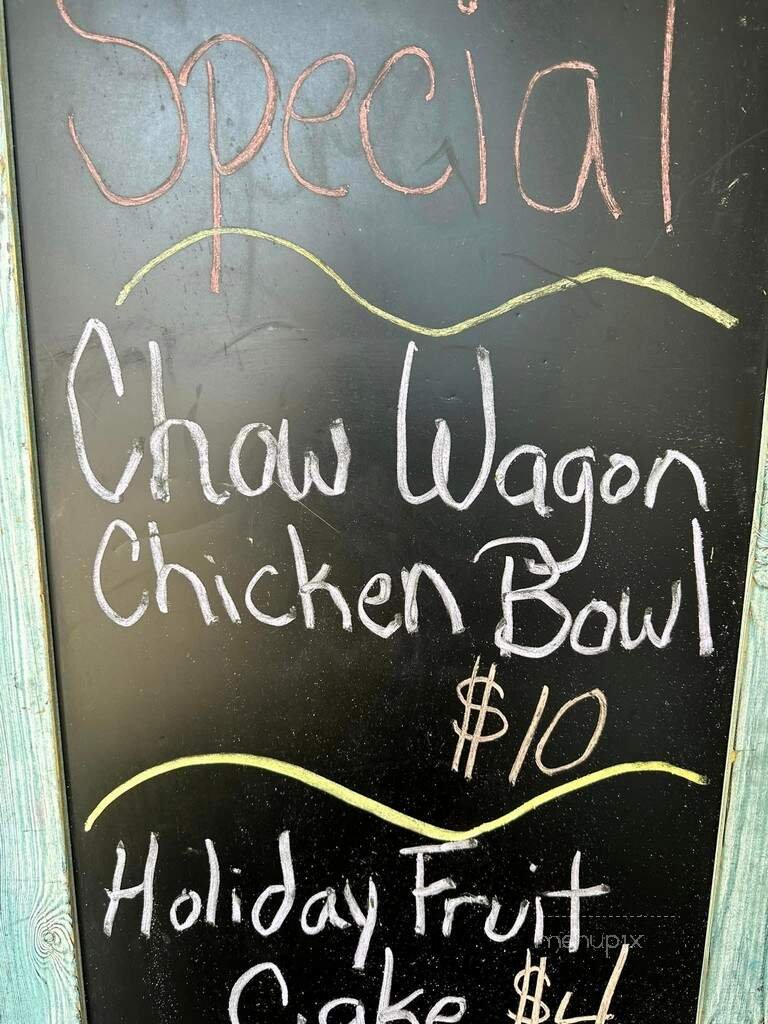 Special
Chow Wagon
Chicken Bowl
$10
Holiday Fruit
menupix
Cake $4